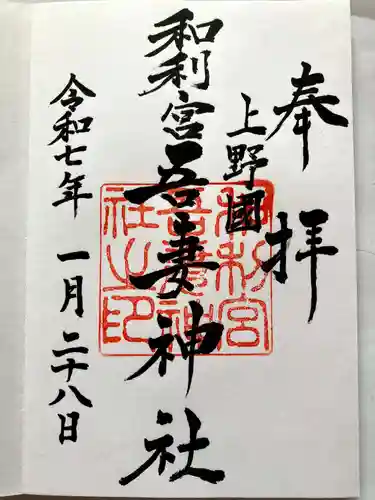 奉拝
上野國
和利宮吾妻神社
令和七年 一月二十八日
和利宮
吾妻神
社之印